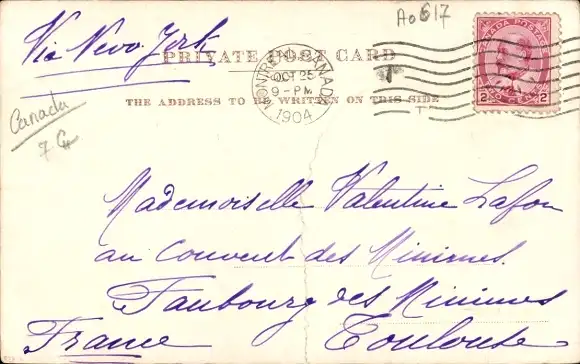 Via New York
A0617
PRIVATE POST CARD
THE ADDRESS TO BE WRITTEN ON THIS SIDE
MONTREAL CANADA
OCT 25
9-PM
1904
CANADA POSTAGE
2 CENTS 2
Canada
Mademoiselle Valentine Lafon
au Couvent des Minimes.
Faubourg des Minimes
France Toulouse